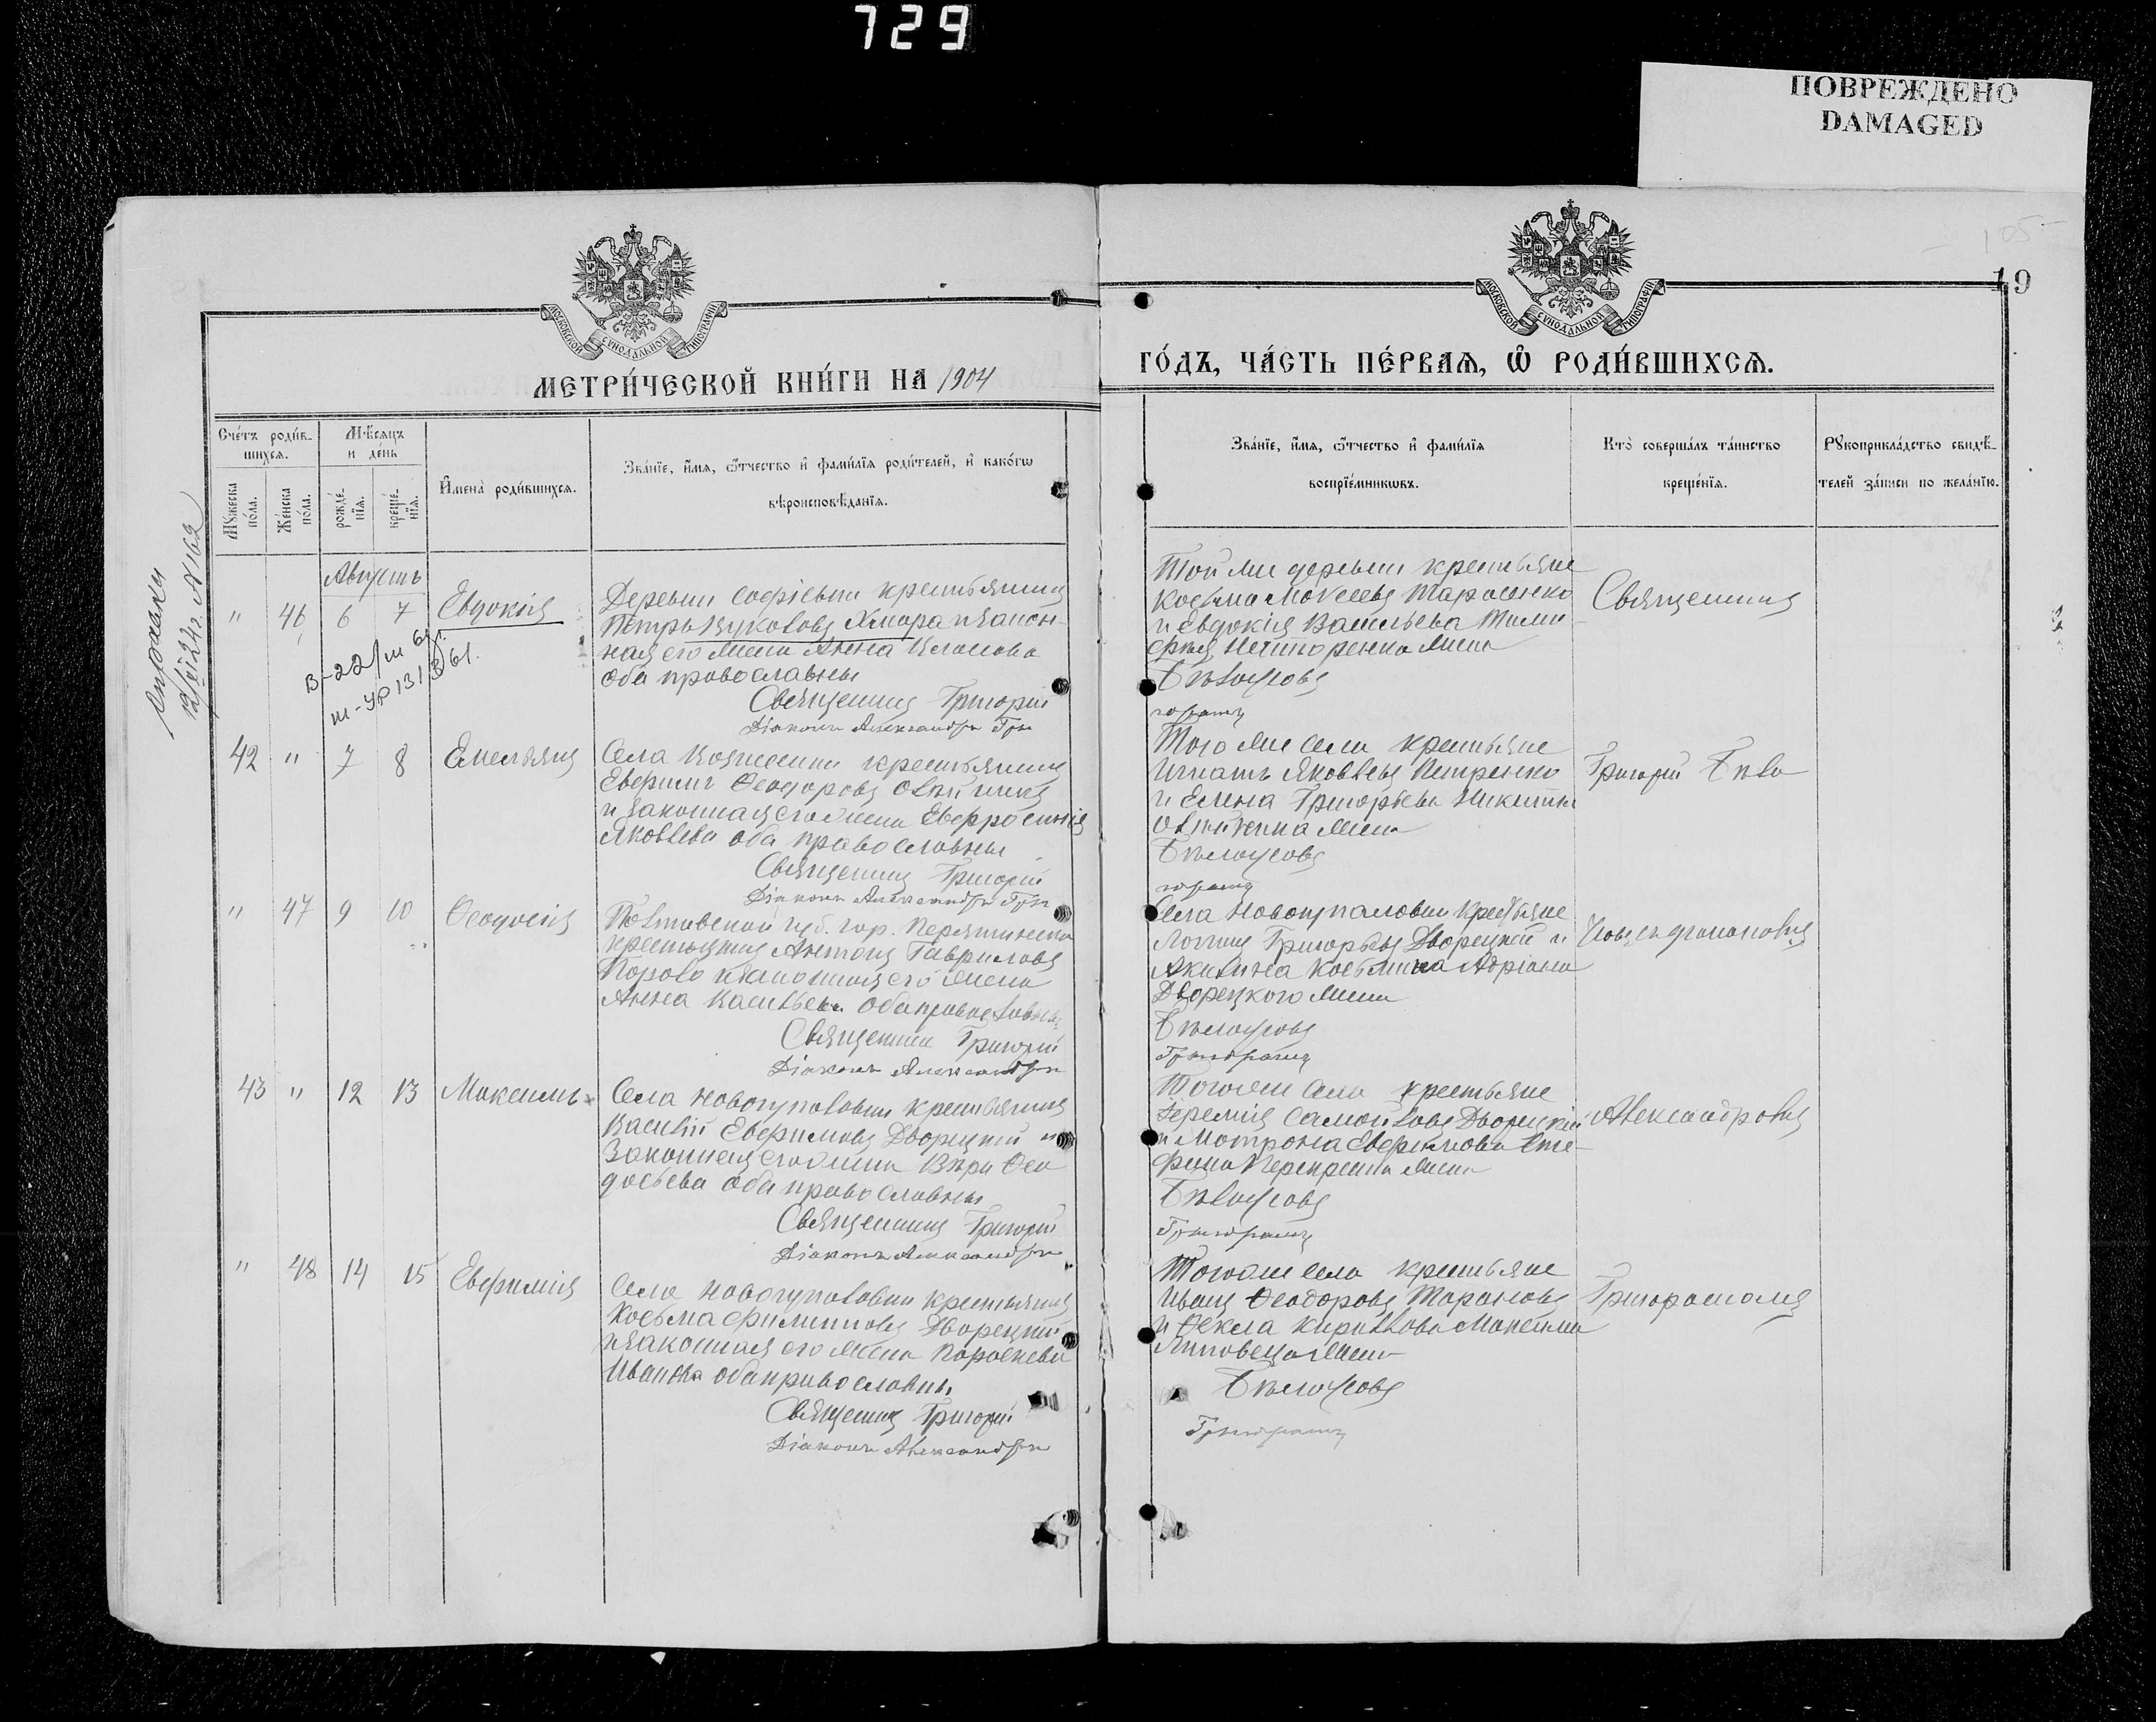 729
ПОВРЕЖДЕНО
DAMAGED
105
19
МОСКОВСКОЙ СѴНОДАЛЬНОЙ ТИПОГРАФІИ
МОСКОВСКОЙ СѴНОДАЛЬНОЙ ТИПОГРАФІИ
МЕТРИ́ЧЕСКОЙ КНИ́ГИ НА 1904
ГО́ДЪ, ЧА́СТЬ ПЕ́РВАѦ, Ѿ РОДИ́ВШИХСѦ.
Сче́тъ роди́в-
шихсѧ.
Мꙋ́жеска по́ла.
Же́нска по́ла.
Мѣ́сѧцъ
и де́нь
рожде́-
нїѧ.
креще́-
нїѧ.
И҆мена̀ роди́вшихсѧ.
Зва́нїе, и҆́мѧ, ѻ҆́тчество и҆ фами́лїѧ роди́телей, и҆ како́гѡ
вѣроисповѣ́данїѧ.
Зва́нїе, и҆́мѧ, ѻ҆́тчество и҆ фами́лїѧ
воспрїе́мникѡвъ.
Кто̀ соверша́лъ та́инство
креще́нїѧ.
Рꙋкоприкла́дство свидѣ́-
телей за́писи по жела́нїю.
12/VI 24г. №162
Августъ
" 46 6 7 Евдокія
Деревни Софіевки крестьянинъ
Петръ Хмара и закон-
ная его жена Анна
оба православны
Священникъ Григорій
Діаконъ Александръ Гри
Той же деревни крестьяне
Косьма Моѵсеевъ Тарасенко
и Евдокія Васильева Тимо-
фея Нечипоренка жена
Бѣлоусовъ
горашъ
Священникъ
42 " 7 8 Емельянъ
Села крестьянинъ
Евфимъ Ѳеодоровъ
и законная его жена Евфросинія
Яковлева оба православны
Священникъ Григорій
Діаконъ Александръ Гри
Того же села крестьяне
Игнатъ Яковлевъ Петренко
и Елена Григорьева Никиты
жена
Бѣлоусовъ
горашъ
Григорій Бѣло
" 47 9 10 Ѳеодосія
Полтавской губ. гор. Пирятинска
крестьянинъ Антонъ Гавриловъ
и законная его жена
Анна Васильева оба православны
Священникъ Григорій
Діаконъ Александръ
Села Новогупаловки крестьяне
Логинъ Григорьевъ Дворецкій и
Акилина Косьмина Адріана
Дворецкого жена
Бѣлоусовъ
Григорашъ
усовъ съ діакономъ
43 " 12 13 Максимъ
Села Новогупаловки крестьянинъ
Василій Евфимовъ Дворецкій и
законная его жена Вѣра Ѳео
досьева оба православны
Священникъ Григорій
Діаконъ Александръ
Того же села крестьяне
Іеремія Самойловъ Дворецкій
и Мотрона Евфимова Сте-
фана жена
Бѣлоусовъ
Григорашъ
Александромъ
" 48 14 15 Евфимія
Села Новогупаловки крестьянинъ
Косьма Филипповъ Дворецкій
и законная его жена Параскева
Иванова оба православны
Священникъ Григорій
Діаконъ Александръ
Того же села крестьяне
Иванъ Ѳеодоровъ Тарановъ
и Ѳекла Кириллова Максима
Липовецкаго жена
Бѣлоусовъ
Григорашъ
Григорашомъ